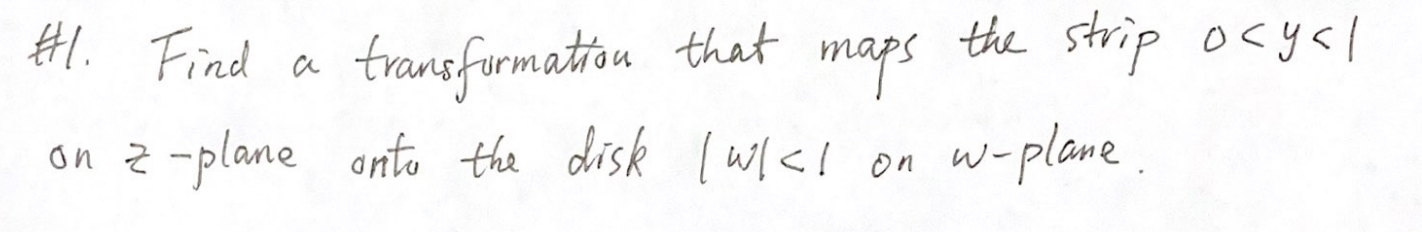 #1. Find a transformation that maps the strip 0<y<1
on z-plane onto the disk |w|<1 on w-plane.